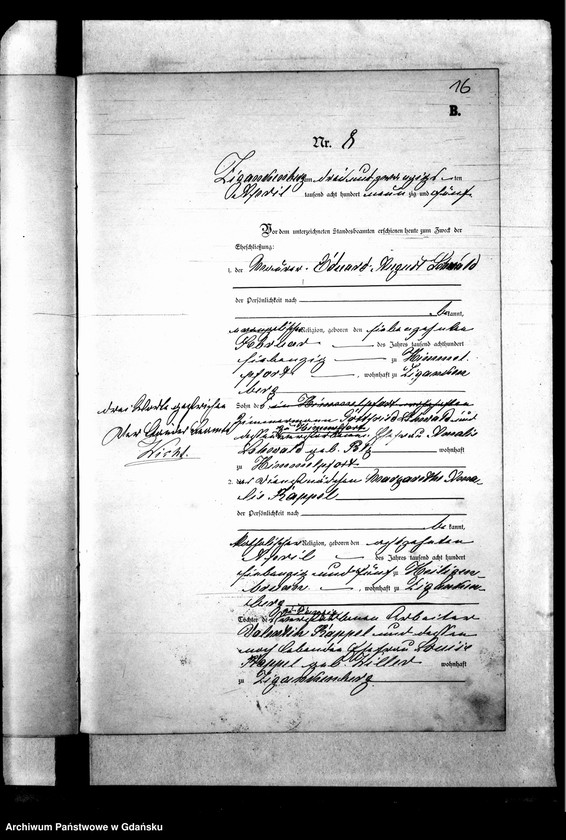 16
B.
Nr. 8
Zigankenberg am dreiundzwanzigsten
April tausend acht hundert neunzig und fünf
Vor dem unterzeichneten Standesbeamten erschienen heute zum Zweck der
Eheschließung:
1. der Maurer Eduard August
der Persönlichkeit nach
bekannt,
evangelischer Religion, geboren den siebenzehnten
Februar des Jahres tausend achthundert
siebenzig zu Himmel-
pfort, wohnhaft zu Ziganken-
berg
Sohn des in Himmelpfort wohnhaften
Zimmermann Gottfried und
dessen Ehefrau Amalie
geb. wohnhaft
zu Himmelpfort
drei Worte gestrichen
Der Standesbeamte
Licht.
2. das Dienstmädchen Margarethe Ama-
lie Kappel
der Persönlichkeit nach
bekannt,
katholischer Religion, geboren den achtzehnten
April des Jahres tausend acht hundert
siebenzig und fünf zu Heiligen-
brunn, wohnhaft zu Ziganken-
berg
Tochter des verstorbenen Arbeiter
Valentin Kappel und dessen
noch lebenden Ehefrau Louise
Kappel geb. Hiller wohnhaft
zu Zigankenberg.
Archiwum Państwowe w Gdańsku